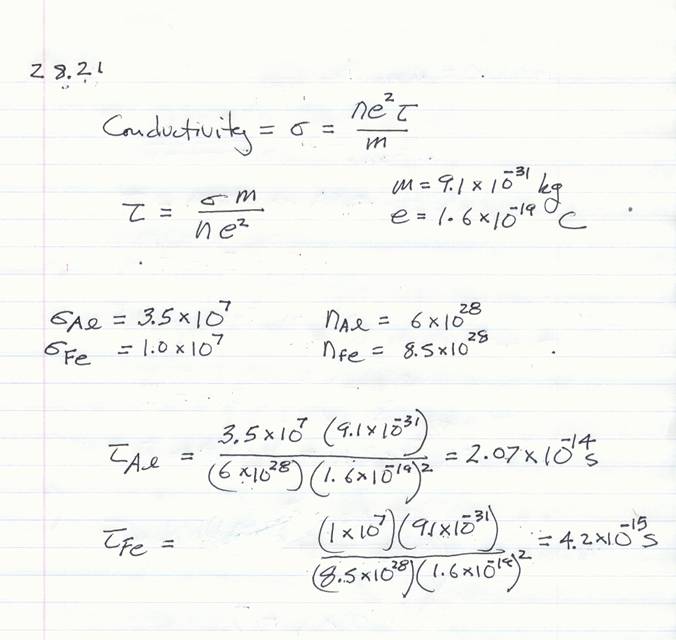 28.21
Conductivity = σ = ne²τ / m
τ = σ m / n e²
m = 9.1 × 10⁻³¹ kg
e = 1.6 × 10⁻¹⁹ C
σAl = 3.5 × 10⁷
nAl = 6 × 10²⁸
σFe = 1.0 × 10⁷
nFe = 8.5 × 10²⁸
τAl = 3.5 × 10⁷ (9.1 × 10⁻³¹) / (6 × 10²⁸) (1.6 × 10⁻¹⁹)² = 2.07 × 10⁻¹⁴ s
τFe = (1 × 10⁷) (9.1 × 10⁻³¹) / (8.5 × 10²⁸) (1.6 × 10⁻¹⁹)² = 4.2 × 10⁻¹⁵ s